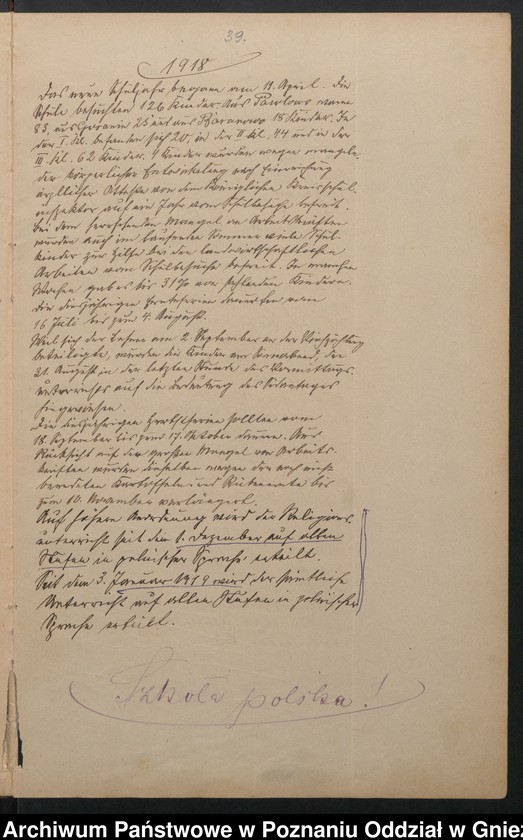 39.
1918
Das neue Schuljahr begann am 11. April. Die
Schule besuchten 126 Kinder. Aus Pawlowo waren
83, aus Goranin 25 und aus Baranowo 18 Kinder. In
der I. Kl. befanden sich 20, in der II Kl. 44 und in der
III. Kl. 62 Kinder. 4 Kinder wurden wegen mangeln-
der körperlicher Entwickelung nach Einreichung
ärztlicher Atteste von dem Königlichen Kreisschul-
inspektor auf ein Jahr vom Schulbesuche befreit.
Bei dem herrschenden Mangel an Arbeitskräften
wurden auch im laufenden Sommer viele Schul-
kinder zur Hilfe bei den landwirtschaftlichen
Arbeiten vom Schulbesuche befreit. In manchen
Wochen gab es bis 31% von fehlenden Kindern.
Die diesjährigen Ernteferien dauerten vom
16 Juli bis zum 4. August.
Weil sich der Lehrer am 2. September an der Viehzählung
beteiligte, wurden die Kinder am Sonnabend, den
31. August in der letzten Stunde des Vormittags-
unterrichts auf die Bedeutung des Sedantages
hingewiesen.
Die diesjährigen Herbstferien sollten vom
18. September bis zum 17. Oktober dauern. Aus
Rücksicht auf den großen Mangel von Arbeits-
kräften wurden dieselben wegen der noch nicht
beendeten Kartoffeln und Rübenernte bis
zum 10. November verlängert.
Auf höhere Anordnung wird der Religions-
unterricht seit dem 1. Dezember auf allen
Stufen in polnischer Sprache erteilt.
Seit dem 3. Januar 1919 wird der sämtliche
Unterricht auf allen Stufen in polnischer
Sprache erteilt.
Szkoła polska!
Archiwum Państwowe w Poznaniu Oddział w Gnie